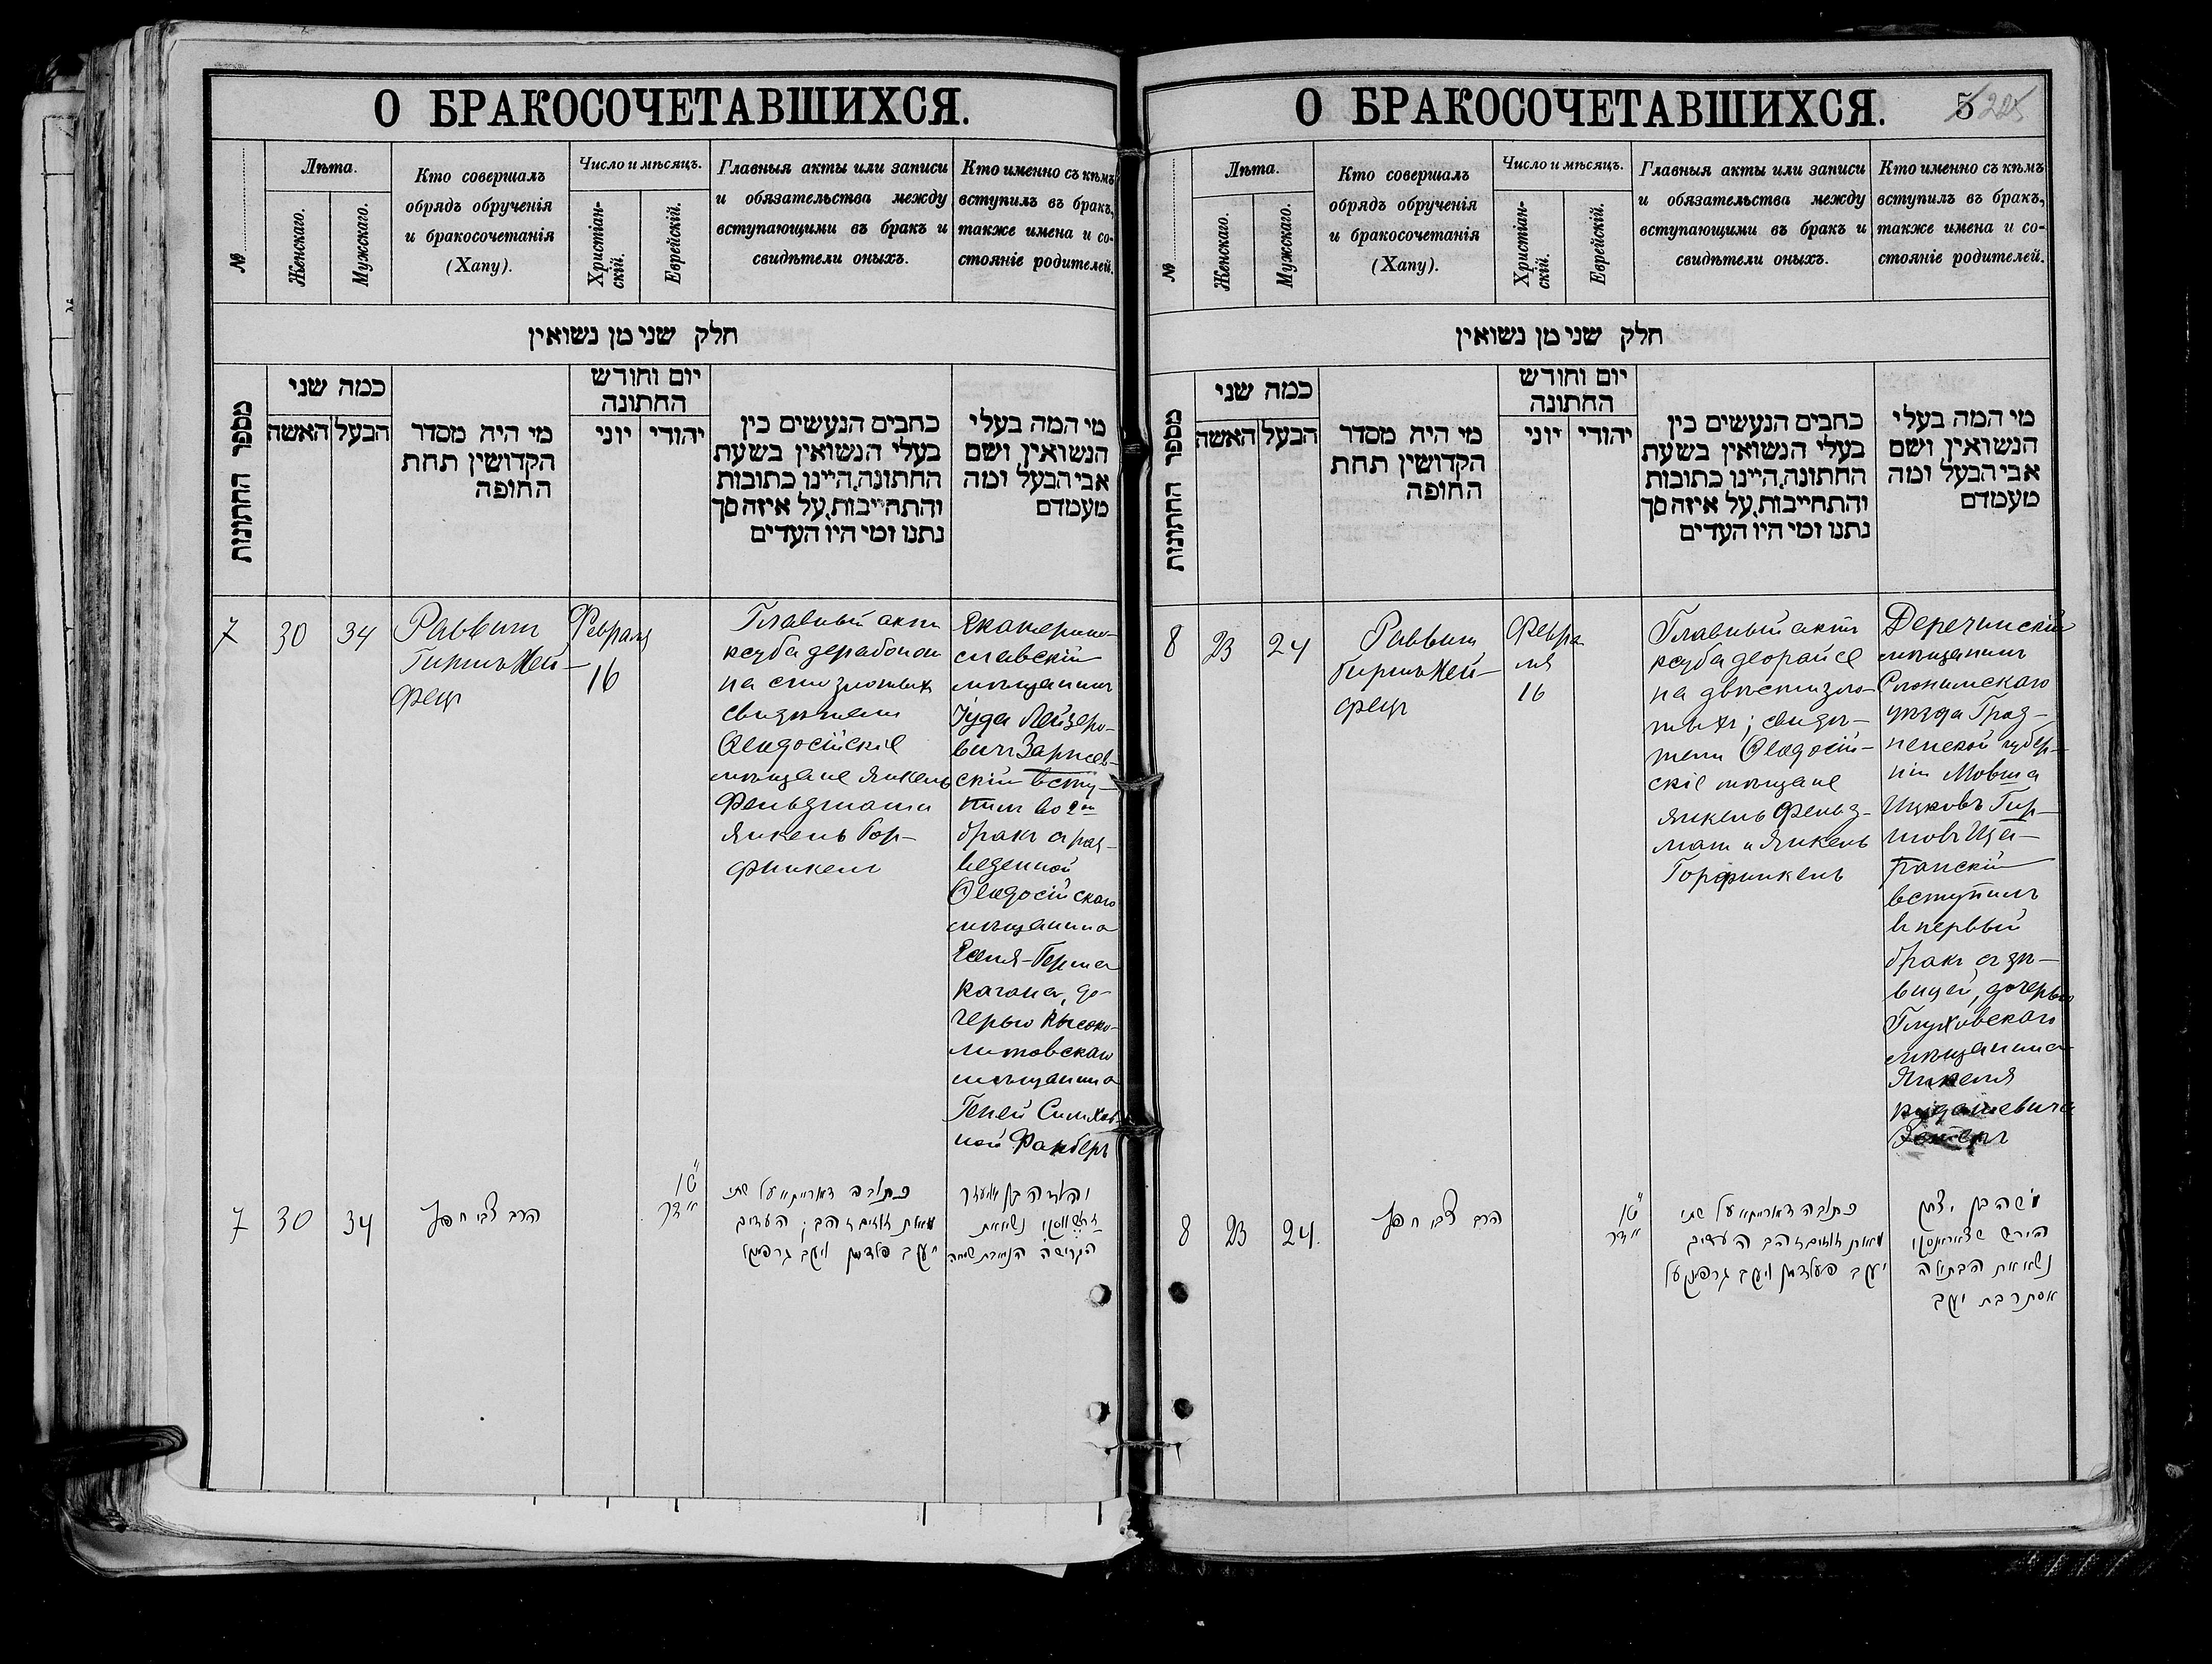 О БРАКОСОЧЕТАВШИХСЯ.
№
Лѣта.
Женскаго.
Мужскаго.
Кто совершалъ
обрядъ обрученія
и бракосочетанія
(Хапу).
Число и мѣсяцъ.
Христіан-
скій.
Еврейскій.
Главныя акты или записи
и обязательства между
вступающими въ бракъ и
свидѣтели оныхъ.
Кто именно съ кѣмъ
вступилъ въ бракъ,
также имена и со-
стояніе родителей.
חלק שני מן נשואין
מספר החתונות
כמה שני
האשה
הבעל
מי היה מסדר
הקדושין תחת
החופה
יום וחודש
החתונה
יוני
יהודי
כתבים הנעשים בין
בעלי הנשואין בשעת
החתונה, היינו כתובות
והתחייבות, על איזה סך
נתנו ומי היו העדים
מי המה בעלי
הנשואין ושם
אבי הבעל ומה
מעמדם
7
30
34
Раввинъ
Гиршъ Хей-
фецъ
Февраля
16
Главный актъ
на сто злотыхъ
свидѣтели
Ѳеодосійскіе
мѣщане Янкель
Фельдманъ и
Янкель Гор-
финкель
Екатерино-
славскій
мѣщанинъ
Іуда Лейзеро-
вичъ
скій всту-
пилъ во 2й
бракъ съ раз-
веденной
Ѳеодосійскаго
мѣщанина
до-
черью Высоко-
литовскаго
мѣщанина
7
30
34
הרב צבי חפץ
ט"ו
אדר
כתובה דאורייתא על שתי
מאות זוזים זהב; העדים
יעקב פלדמן ויעקב גרפינקל
יהודה בן אליעזר
נשא את
הגרושה
О БРАКОСОЧЕТАВШИХСЯ.
5 205
№
Лѣта.
Женскаго.
Мужскаго.
Кто совершалъ
обрядъ обрученія
и бракосочетанія
(Хапу).
Число и мѣсяцъ.
Христіан-
скій.
Еврейскій.
Главныя акты или записи
и обязательства между
вступающими въ бракъ и
свидѣтели оныхъ.
Кто именно съ кѣмъ
вступилъ въ бракъ,
также имена и со-
стояніе родителей.
חלק שני מן נשואין
מספר החתונות
כמה שני
האשה
הבעל
מי היה מסדר
הקדושין תחת
החופה
יום וחודש
החתונה
יוני
יהודי
כתבים הנעשים בין
בעלי הנשואין בשעת
החתונה, היינו כתובות
והתחייבות, על איזה סך
נתנו ומי היו העדים
מי המה בעלי
הנשואין ושם
אבי הבעל ומה
מעמדם
8
23
24
Раввинъ
Гиршъ Хей-
фецъ
Февра
ля
16
Главный актъ
ксуба деорайсе
на двѣсти зло-
тыхъ; свидѣ-
тели Ѳеодосій-
скіе мѣщане
Янкель Фельд-
манъ и Янкель
Горфинкель
Деречинскій
мѣщанинъ
Слонимскаго
уѣзда Грод-
ненской губер-
ніи Мовша
Ицковъ Гир-
шовъ
вступилъ
въ первый
бракъ съ дѣ-
вицей, дочерью
Глуховскаго
мѣщанина
Янкеля
8
23
24.
הרב צבי חפץ
ט"ו
אדר
כתובה דאורייתא על שתי
מאות זוזים זהב העדים
יעקב פעלדמן ויעקב גרפינקעל
משה בן יצחק
הירש
נשא את הבתולה
אסתר בת יעקב